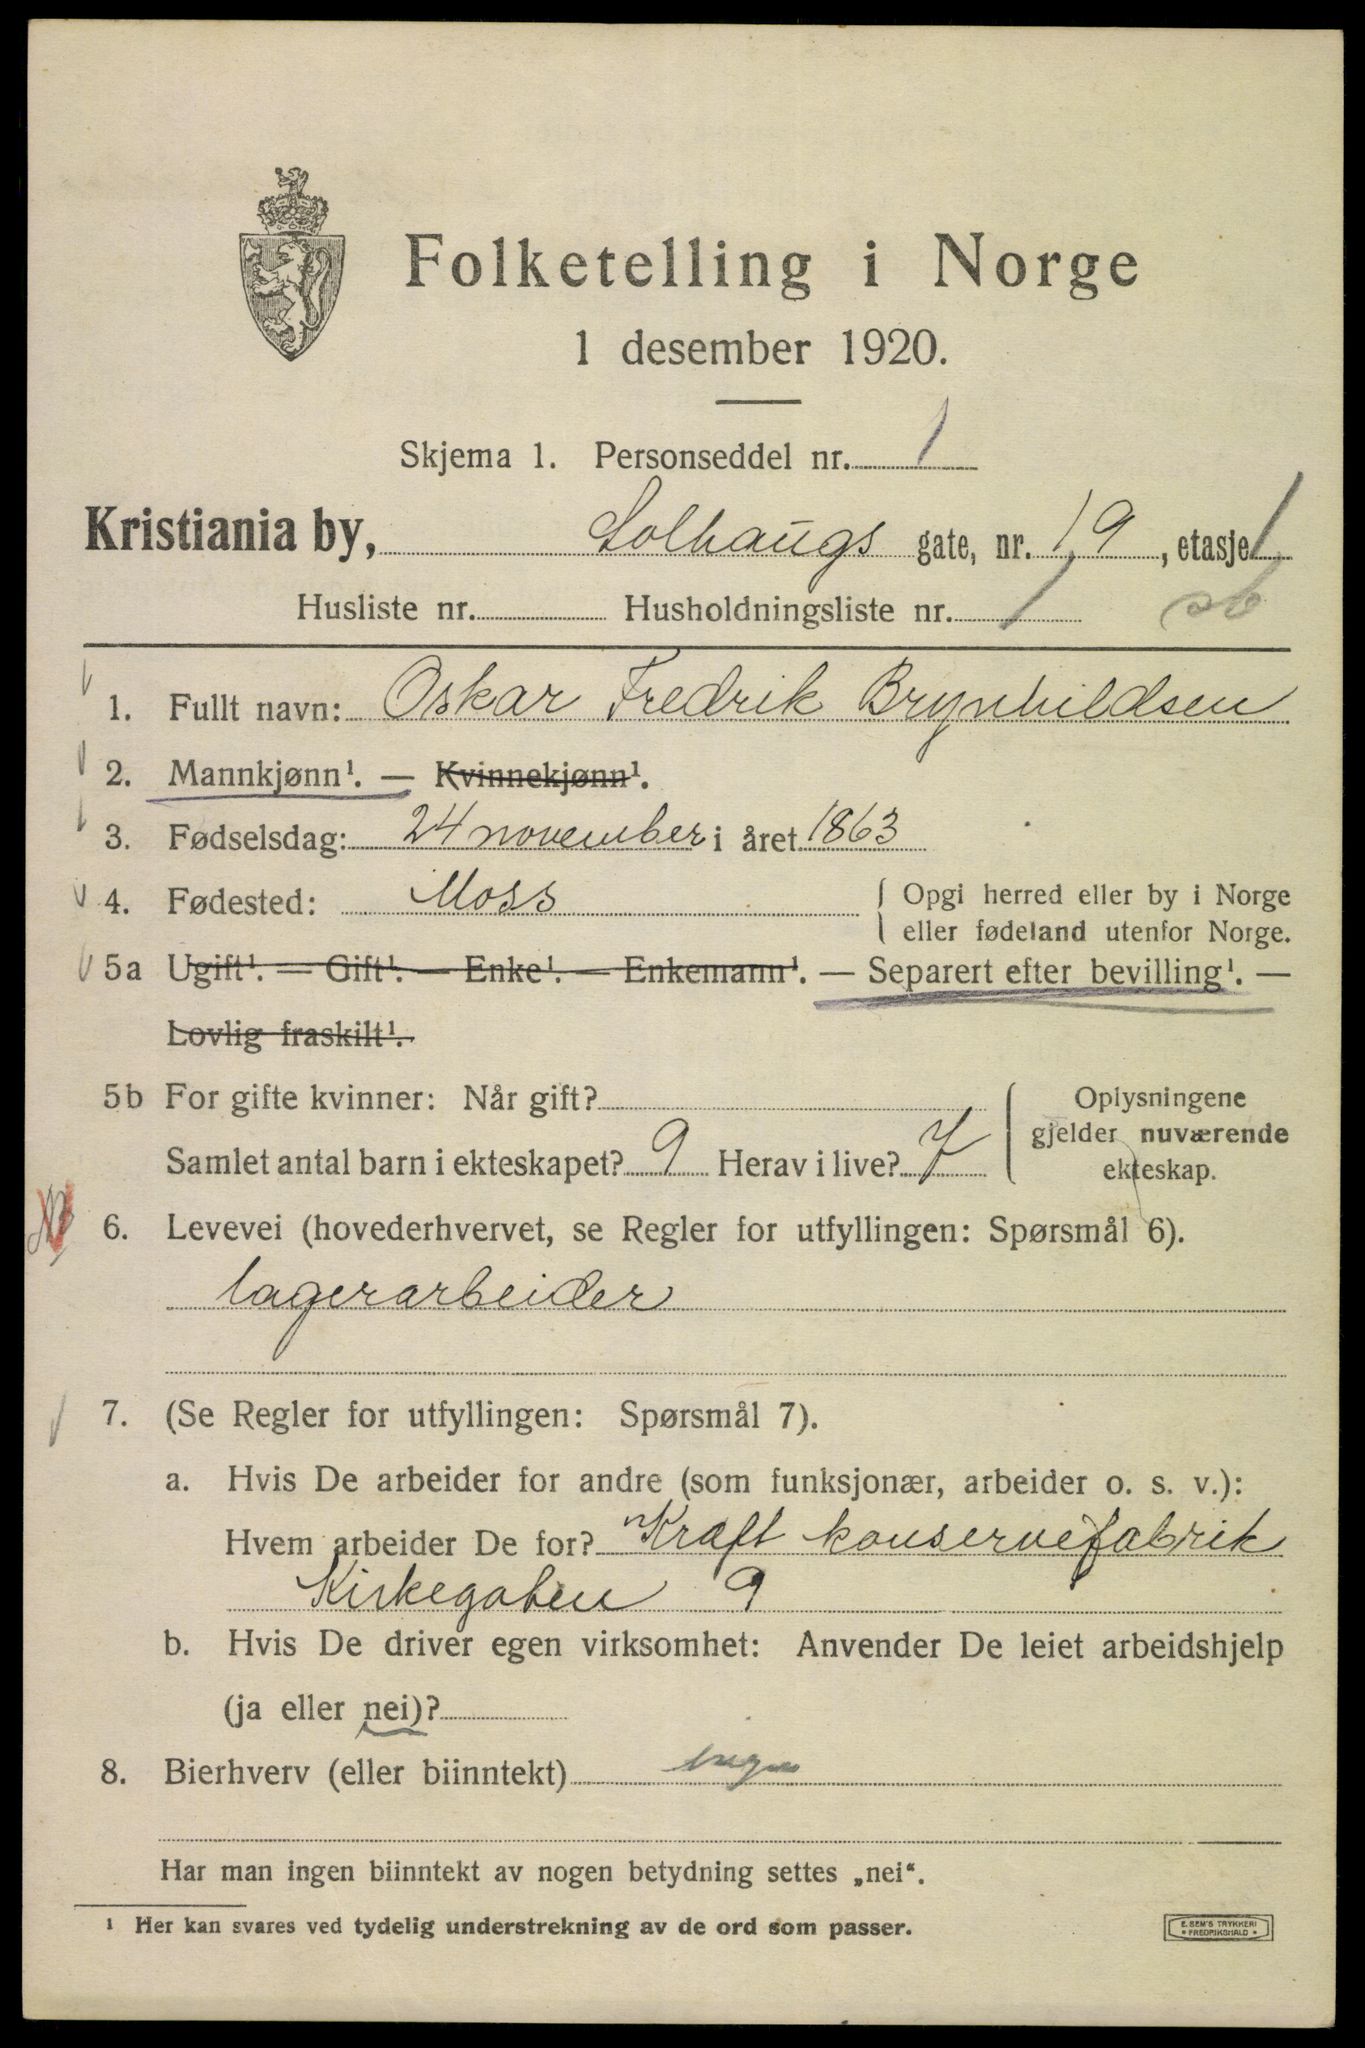 Folketelling i Norge
1 desember 1920.
Skjema 1. Personseddel nr. 1
Kristiania by, Solhaugs gate, nr. 19, etasje 1
Husliste nr. Husholdningsliste nr. 1
1. Fullt navn: Oskar Fredrik Brynhildsen
2. Mannkjønn¹. — Kvinnekjønn¹.
3. Fødselsdag: 24 november i året 1863
4. Fødested: Moss { Opgi herred eller by i Norge
eller fødeland utenfor Norge.
5a Ugift¹. — Gift¹. — Enke¹. — Enkemann¹. — Separert efter bevilling¹. —
Lovlig fraskilt¹.
5b For gifte kvinner: Når gift? { Oplysningene
gjelder nuværende
Samlet antal barn i ekteskapet? 9 Herav i live? 7
ekteskap.
6. Levevei (hovederhvervet, se Regler for utfyllingen: Spørsmål 6).
lagerarbeider
7. (Se Regler for utfyllingen: Spørsmål 7).
a. Hvis De arbeider for andre (som funksjonær, arbeider o. s. v.):
Hvem arbeider De for? "Kraft konservefabrik
Kirkegaten 9
b. Hvis De driver egen virksomhet: Anvender De leiet arbeidshjelp
(ja eller nei)?
8. Bierhverv (eller biinntekt) ingen
Har man ingen biinntekt av nogen betydning settes „nei“.
¹ Her kan svares ved tydelig understrekning av de ord som passer.
E. SEM'S TRYKKERI
* FREDRIKSHALD *